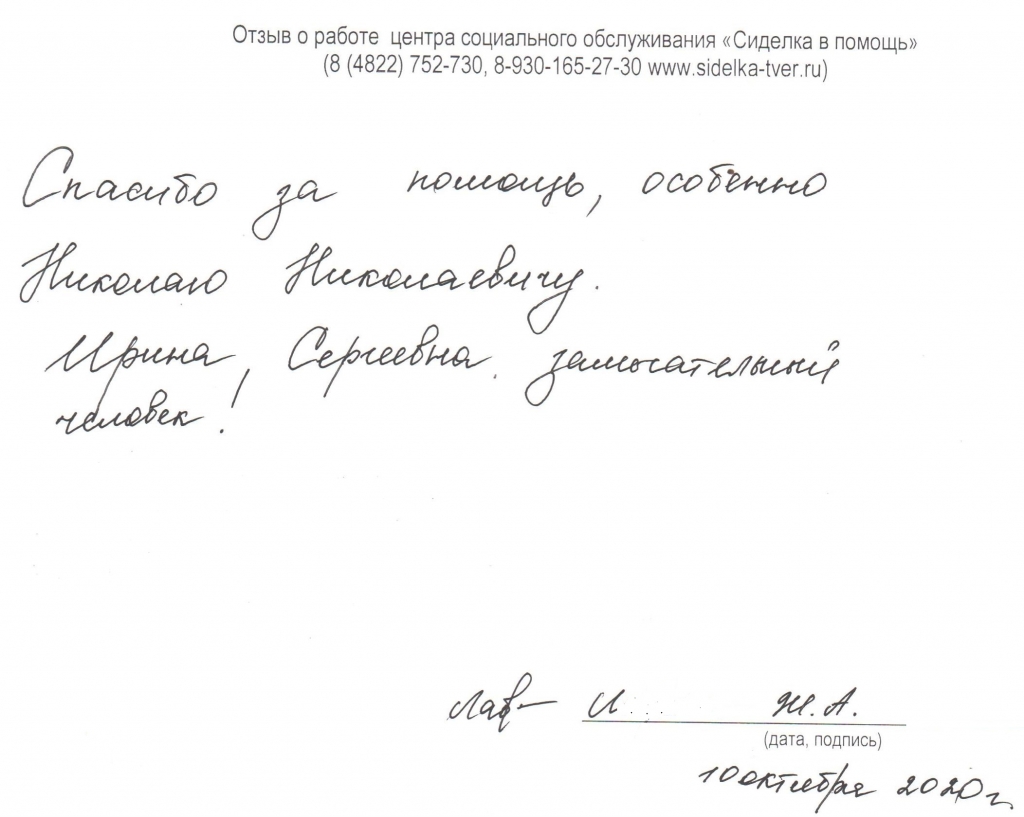 Отзыв о работе центра социального обслуживания «Сиделка в помощь»
(8 (4822) 752-730, 8-930-165-27-30 www.sidelka-tver.ru)
Спасибо за помощь, особенно
Николаю Николаевичу.
Ирина, Сергеевна замечательный
человек!
И Ж.А.
(дата, подпись)
10 октября 2020 г.